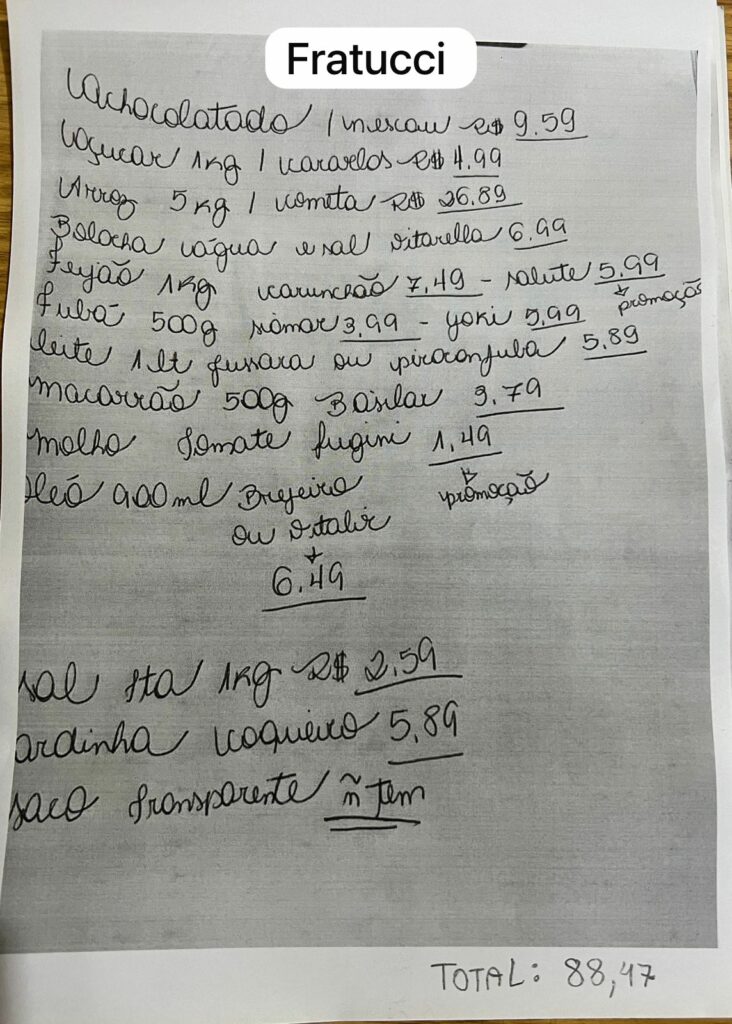 Fratucci
Achocolatado / Nescau R$ 9.59
Açucar 1Kg / Caravelas R$ 4.99
Arroz 5Kg / Cometa R$ 26.89
Bolacha água e sal Vitarella 6.99
Feijão 1Kg Carunchão 7,49 - Salute 5.99
↓ promoção
Fubá 500g Siamar 3,99 - yoki 5,99
leite 1lt Jussara ou piracanjuba 5.89
macarrão 500g Basilar 3.79
molho tomate fugini 1,49
↓
promoção
óleo 900ml Brejeiro
ou Vitaliv
↓
6.49
sal sta 1Kg R$ 2.59
ardinha Coqueiro 5,89
saco transparente ñ tem
TOTAL: 88,47